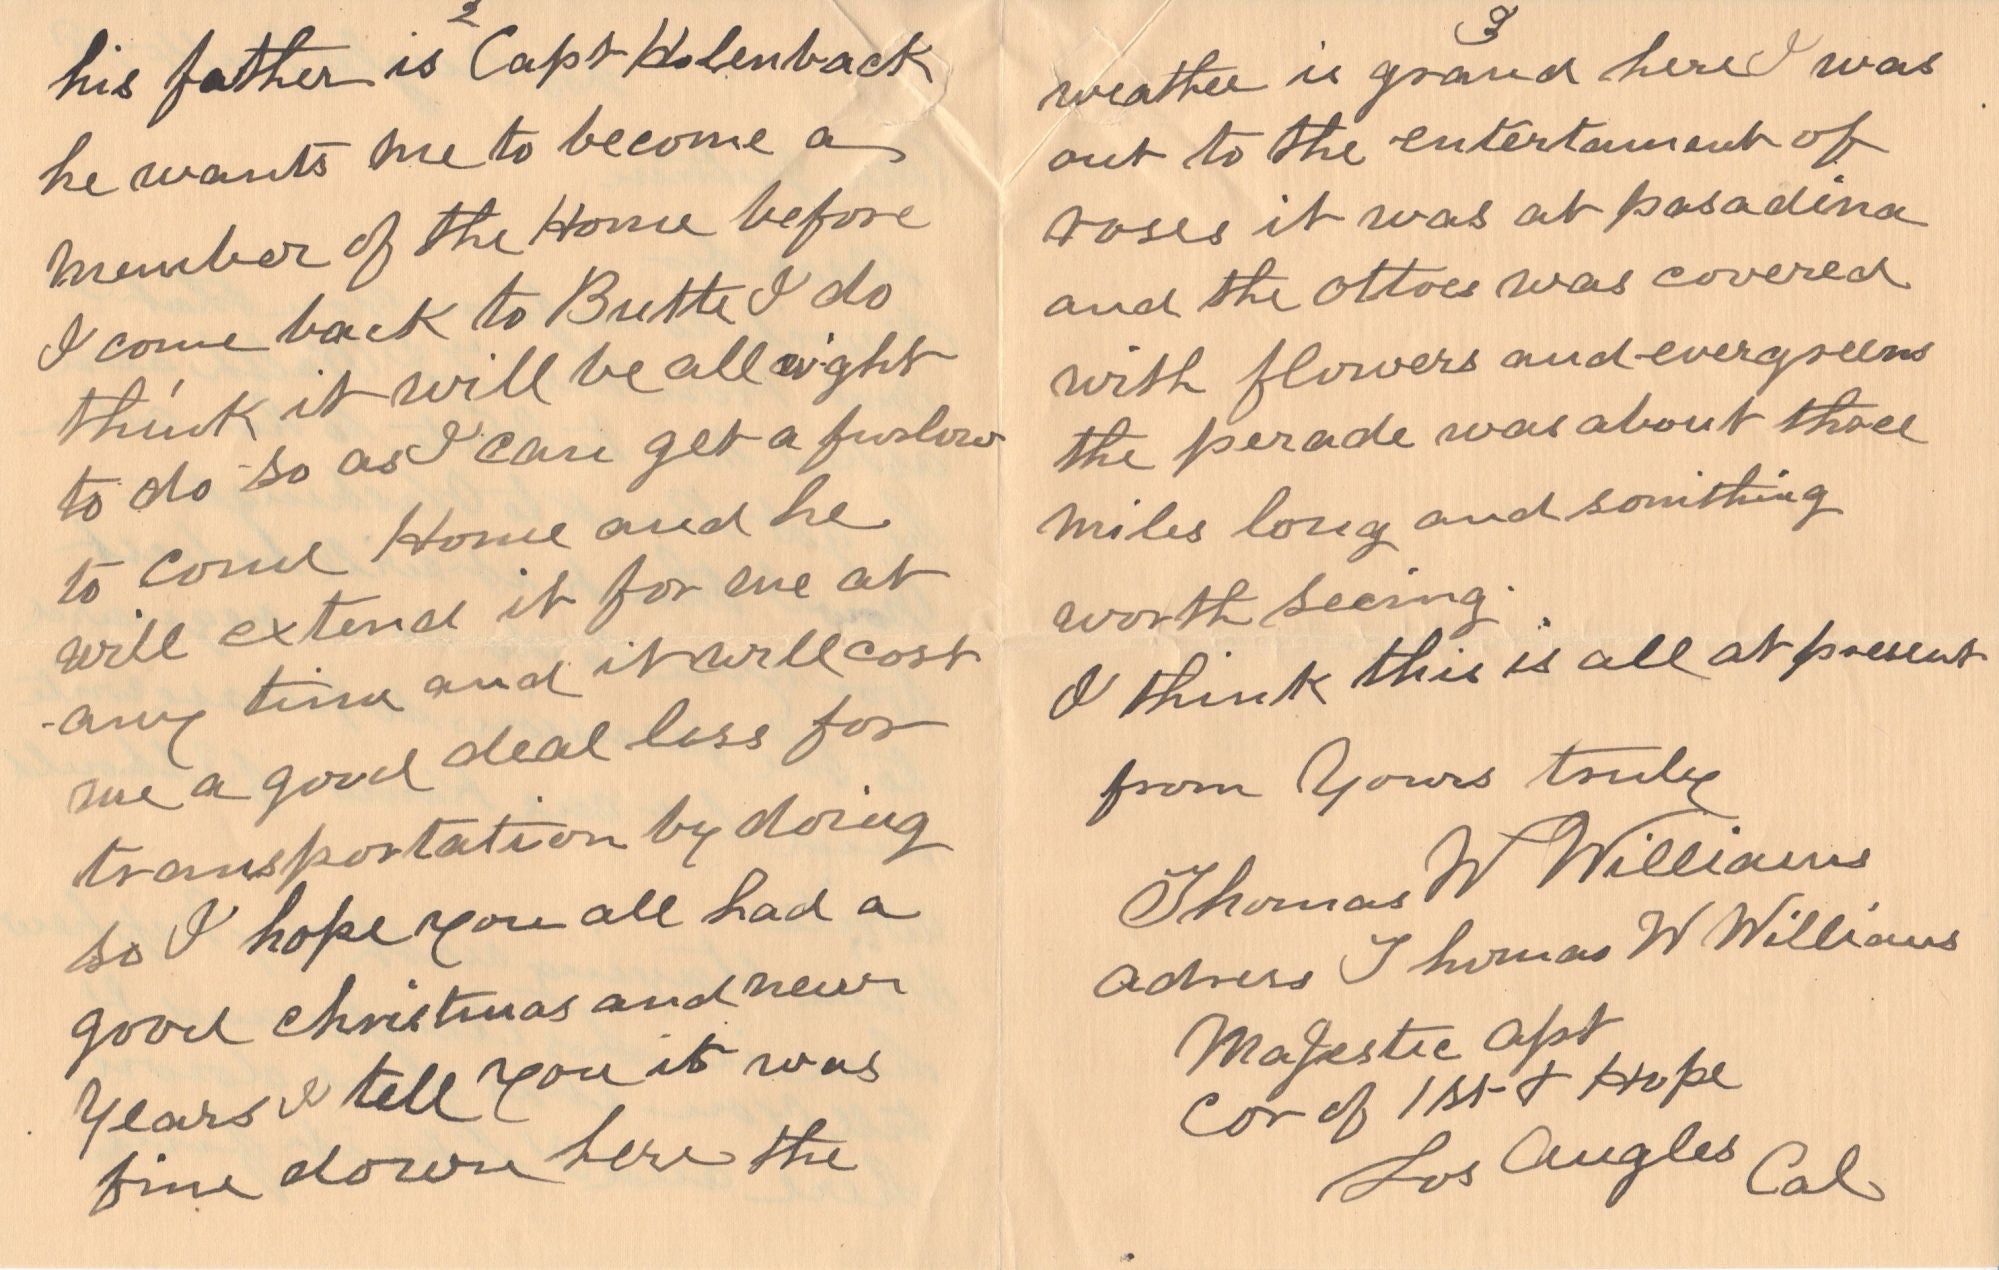 2
his father is Capt Holenback
he wants me to become a
member of the Home before
I come back to Butte I do
think it will be all right
to do so as I can get a furlow
to come Home and he
will extend it for me at
any time and it will cost
me a good deal less for
transportation by doing
so I hope you all had a
good christmas and new
Years I tell you it was
fine down here the
3
weather is grand here I was
out to the entertament of
roses it was at pasadina
and the ottoes was covered
with flowers and evergreens
the perade was about three
miles long and somithing
worth seeing.
I think this is all at present
from Yours truly
Thomas W Williams
adress Thomas W Williams
Majestic apt
Cor of 1st & Hope
Los Augles Cal